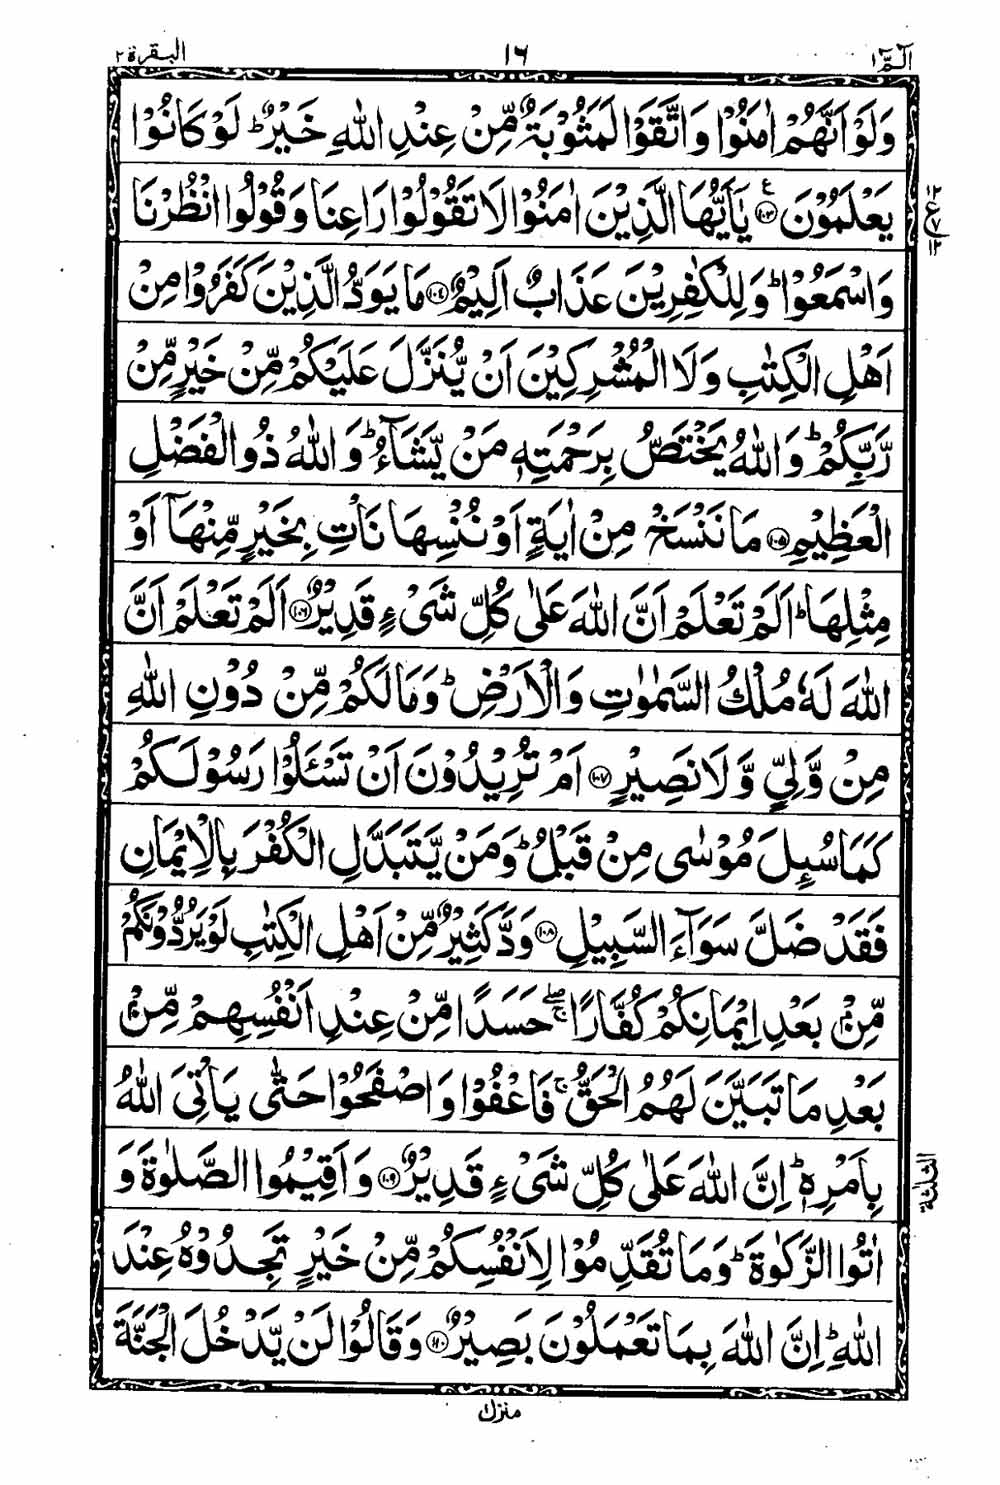 الٓمّٓ ١ ١٦ البقرة ٢
وَلَوْ اَنَّهُمْ اٰمَنُوْا وَاتَّقَوْا لَمَثُوْبَةٌ مِّنْ عِنْدِ اللّٰهِ خَيْرٌ ؕ لَوْ كَانُوْا
يَعْلَمُوْنَ ﴿۱۰۳﴾ ع يٰۤاَيُّهَا الَّذِيْنَ اٰمَنُوْا لَا تَقُوْلُوْا رَاعِنَا وَقُوْلُوا انْظُرْنَا
١٢ ع ٧ ١٢
وَاسْمَعُوْا ؕ وَلِلْكٰفِرِيْنَ عَذَابٌ اَلِيْمٌ ﴿۱۰۴﴾ مَا يَوَدُّ الَّذِيْنَ كَفَرُوْا مِنْ
اَهْلِ الْكِتٰبِ وَلَا الْمُشْرِكِيْنَ اَنْ يُّنَزَّلَ عَلَيْكُمْ مِّنْ خَيْرٍ مِّنْ
رَّبِّكُمْ ؕ وَاللّٰهُ يَخْتَصُّ بِرَحْمَتِهٖ مَنْ يَّشَآءُ ؕ وَاللّٰهُ ذُو الْفَضْلِ
الْعَظِيْمِ ﴿۱۰۵﴾ مَا نَنْسَخْ مِنْ اٰيَةٍ اَوْ نُنْسِهَا نَاْتِ بِخَيْرٍ مِّنْهَاۤ اَوْ
مِثْلِهَا ؕ اَلَمْ تَعْلَمْ اَنَّ اللّٰهَ عَلٰى كُلِّ شَىْءٍ قَدِيْرٌ ﴿۱۰۶﴾ اَلَمْ تَعْلَمْ اَنَّ
اللّٰهَ لَهٗ مُلْكُ السَّمٰوٰتِ وَالْاَرْضِ ؕ وَمَا لَكُمْ مِّنْ دُوْنِ اللّٰهِ
مِنْ وَّلِىٍّ وَّلَا نَصِيْرٍ ﴿۱۰۷﴾ اَمْ تُرِيْدُوْنَ اَنْ تَسْـَٔلُوْا رَسُوْلَكُمْ
كَمَا سُئِلَ مُوْسٰى مِنْ قَبْلُ ؕ وَمَنْ يَّتَبَدَّلِ الْكُفْرَ بِالْاِيْمَانِ
فَقَدْ ضَلَّ سَوَآءَ السَّبِيْلِ ﴿۱۰۸﴾ وَدَّ كَثِيْرٌ مِّنْ اَهْلِ الْكِتٰبِ لَوْ يَرُدُّوْنَكُمْ
مِّنْۢ بَعْدِ اِيْمَانِكُمْ كُفَّارًا ۖۚ حَسَدًا مِّنْ عِنْدِ اَنْفُسِهِمْ مِّنْۢ
بَعْدِ مَا تَبَيَّنَ لَهُمُ الْحَقُّ ۚ فَاعْفُوْا وَاصْفَحُوْا حَتّٰى يَاْتِىَ اللّٰهُ
بِاَمْرِهٖ ؕ اِنَّ اللّٰهَ عَلٰى كُلِّ شَىْءٍ قَدِيْرٌ ﴿۱۰۹﴾ وَاَقِيْمُوا الصَّلٰوةَ وَ
الثلثة
اٰتُوا الزَّكٰوةَ ؕ وَمَا تُقَدِّمُوْا لِاَنْفُسِكُمْ مِّنْ خَيْرٍ تَجِدُوْهُ عِنْدَ
اللّٰهِ ؕ اِنَّ اللّٰهَ بِمَا تَعْمَلُوْنَ بَصِيْرٌ ﴿۱۱۰﴾ وَقَالُوْا لَنْ يَّدْخُلَ الْجَنَّةَ
منزل